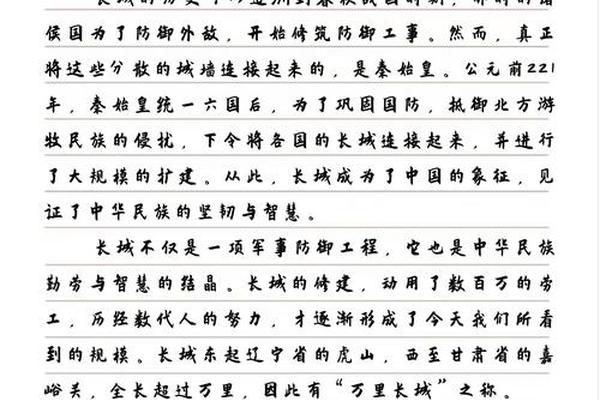 长城的历史可以追溯到春秋战国时期，那时的诸
侯国为了防御外敌，开始修筑防御工事。然而，真正
将这些分散的城墙连接起来的，是秦始皇。公元前221
年，秦始皇统一六国后，为了巩固国防，抵御北方游
牧民族的侵扰，下令将各国的长城连接起来，并进行
了大规模的扩建。从此，长城成为了中国的象征，见
证了中华民族的坚韧与智慧。
长城不仅是一项军事防御工程，它也是中华民族
勤劳与智慧的结晶。长城的修建，动用了数百万的劳
工，历经数代人的努力，才逐渐形成了今天我们所看
到的规模。长城东起辽宁省的虎山，西至甘肃省的嘉
峪关，全长超过万里，因此有“万里长城”之称。